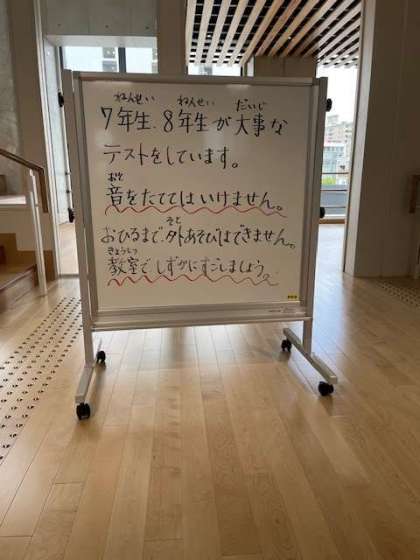 ねんせい ねんせい だいじ
7年生、8年生が大事な
テストをしています。
おと
音をたててはいけません。
そと
おひるまで、外あそびはできません。
きょうしつ
教室でしずかにすごしましょう。